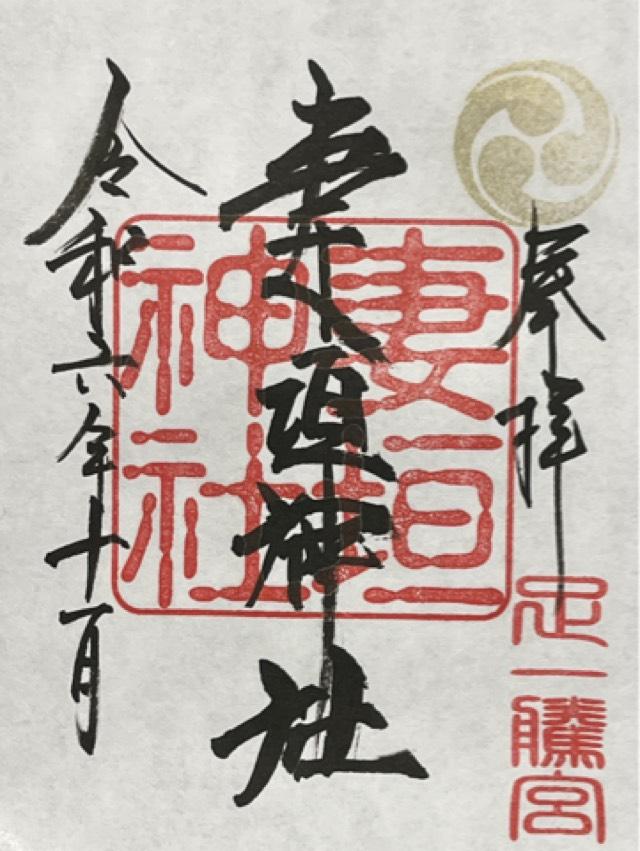 奉拝
足一騰宮
妻垣神社
妻垣
神社
令和六年十一月